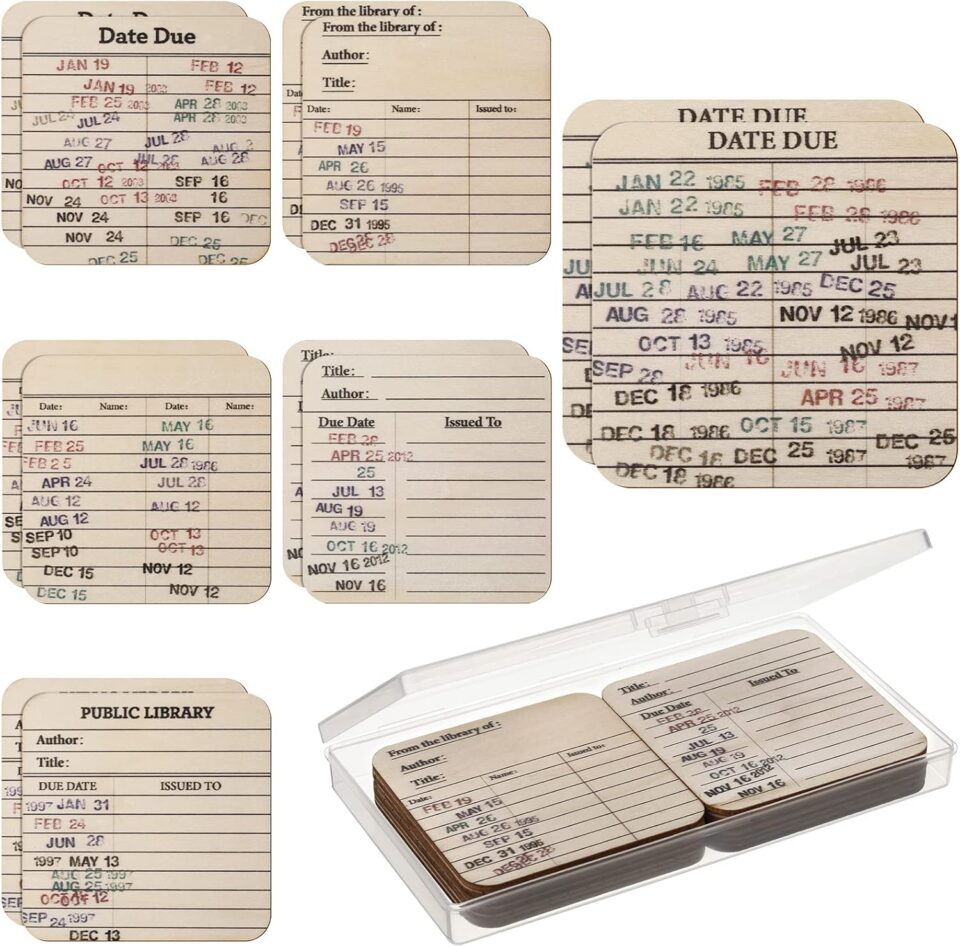 Date Due
JAN 19 FEB 12
JAN 19 2003 FEB 12
FEB 25 2003 APR 28 2003
JUL 24 JUL 24 APR 28 2003
AUG 27 JUL 28 AUG 2
AUG 27 OCT 12 2003 JUL 26 AUG 28
OCT 12 2003 SEP 16
NOV 24 OCT 13 2003 16
NOV 24 SEP 16 DEC
NOV 24 DEC 25
DEC 25 DEC 25
NO
From the library of :
From the library of :
Author:
Title:
Date: Name: Issued to:
FEB 19
MAY 15
APR 26
AUG 26 1995
SEP 15
DEC 31 1995
DEC 25
DATE DUE
DATE DUE
JAN 22 1985 FEB 28 1986
JAN 22 1985 FEB 28 1986
FEB 16 MAY 27 JUL 23
JUN 24 MAY 27 JUL 23
JUL 28 AUG 22 1985 DEC 25
AUG 28 1985 NOV 12 1986 NOV 1
OCT 13 1985 NOV 12
SEP 28 JUN 16 JUN 16 1987
DEC 18 1986 APR 25 1987
OCT 15 1987
DEC 18 1986 DEC 25 1987 DEC 25 1987
DEC 18
DEC 18 1986
Date: Name: Date: Name:
JUN 16 MAY 16
FEB 25 MAY 16
FEB 25 JUL 28 1986
APR 24 JUL 28
AUG 12 AUG 12
AUG 12
SEP 10 OCT 13
SEP 10 OCT 13
DEC 15 NOV 12
DEC 15 NOV 12
Title:
Title:
Author:
Due Date Issued To
FEB 28
APR 25 2012
25
JUL 13
AUG 19
AUG 19
OCT 16 2012
NOV 16 2012
NOV 16
PUBLIC LIBRARY
Author:
Title:
DUE DATE ISSUED TO
1997 JAN 31
FEB 24
JUN 28
1997 MAY 13
AUG 25 1997
AUG 25 1997
OCT 12
SEP 24 1997
DEC 13
From the library of :
Author:
Title:
Date: Name: Issued to:
FEB 19
MAY 15
APR 26
AUG 26 1995
SEP 15
DEC 31 1995
DEC 25
Title:
Author:
Due Date Issued To
FEB 28
APR 25 2012
25
JUL 13
AUG 19
AUG 19
OCT 16 2012
NOV 16 2012
NOV 16